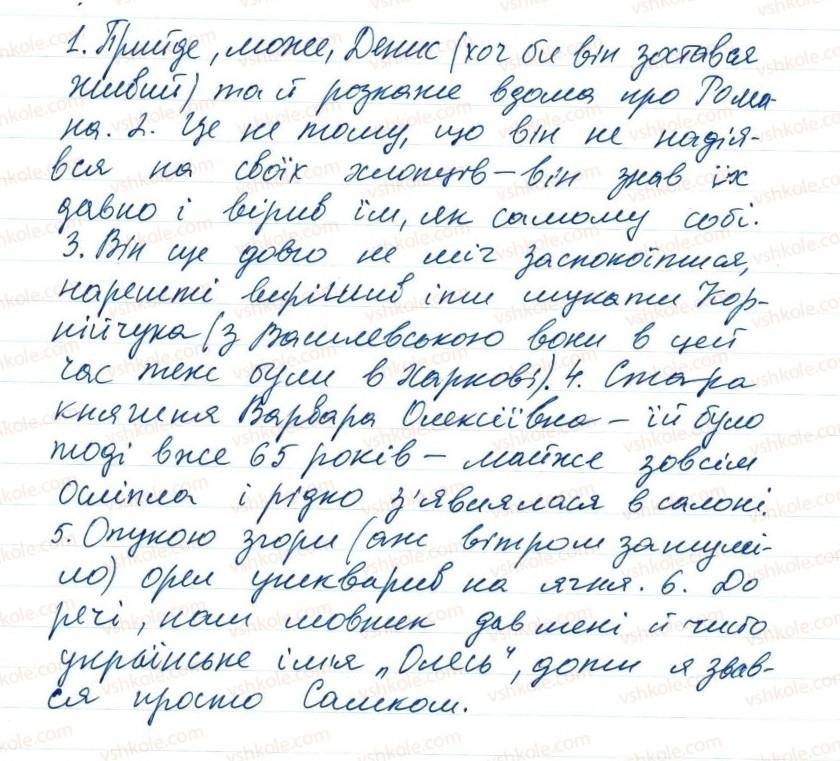 1. Прийде, може, Денис (хоч би він зостався
живий) та й розкаже вдома про Рома-
на. 2. Це не тому, що він не надія-
вся на своїх хлопців – він знав їх
давно і вірив їм, як самому собі.
3. Він ще довго не міг заспокоїтися,
нарешті вирішив іти шукати Кор-
нійчука (з Василевською вони в цей
час теж були в Харкові). 4. Стара
княгиня Варвара Олексіївна – їй було
тоді вже 65 років – майже зовсім
осліпла і рідко з'являлася в салоні.
5. Опукою згори (аж вітром зашумі-
ло) орел ушкварив на ягня. 6. До
речі, наш мовник дав мені й чисто
українське ім'я „Олесь", доти я звав-
ся просто Сашком.